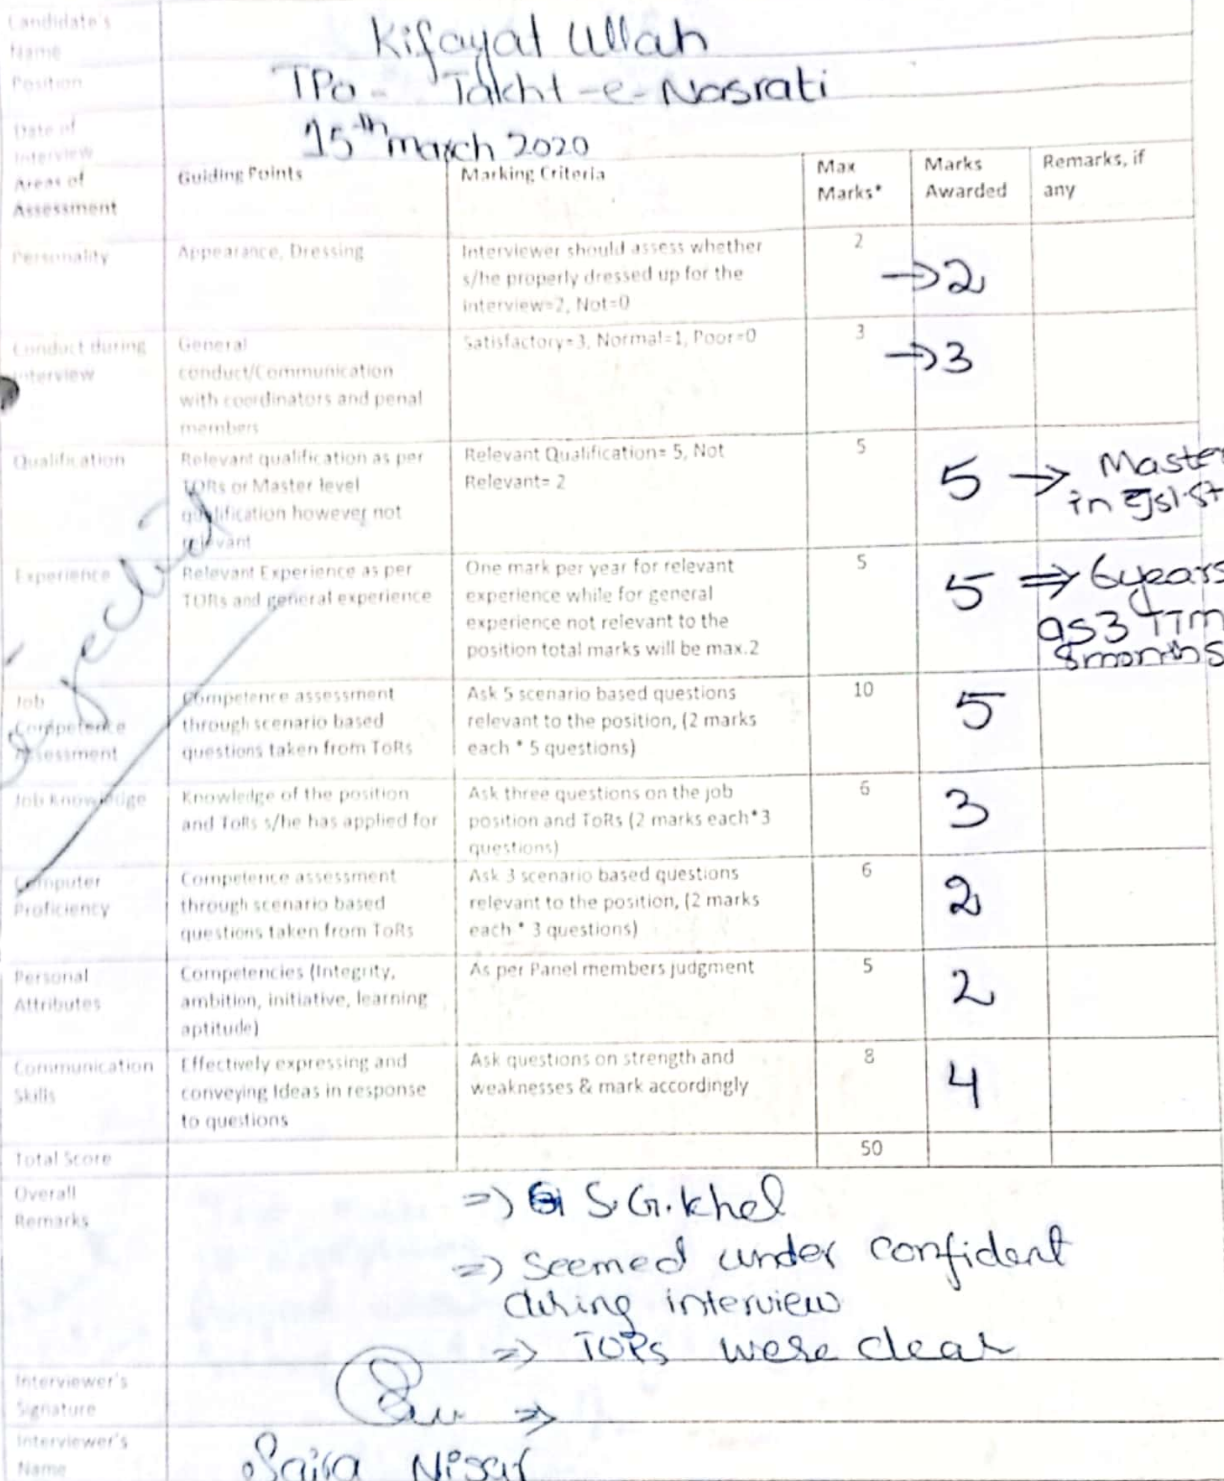 Candidate's
Name
Kifayat Ullah
Position
TPo - Takht-e-Nasrati
Date of
Interview
15th march 2020
Areas of
Assessment
Guiding Points
Marking Criteria
Max
Marks*
Marks
Awarded
Remarks, if
any
Personality
Appearance, Dressing
Interviewer should assess whether
s/he properly dressed up for the
interview=2, Not=0
2
→2
Conduct during
Interview
General
conduct/Communication
with coordinators and penal
members
Satisfactory=3, Normal=1, Poor=0
3
→3
Qualification
Relevant qualification as per
TORs or Master level
qualification however not
relevant
Relevant Qualification= 5, Not
Relevant= 2
5
5 → Master
in
Experience
Relevant Experience as per
TORs and general experience
One mark per year for relevant
experience while for general
experience not relevant to the
position total marks will be max.2
5
5 ⇒ 6years
as3 TTM
8months
Job
Competence
Assessment
Competence assessment
through scenario based
questions taken from ToRs
Ask 5 scenario based questions
relevant to the position, (2 marks
each * 5 questions)
10
5
Job Knowledge
Knowledge of the position
and ToRs s/he has applied for
Ask three questions on the job
position and ToRs (2 marks each*3
questions)
6
3
Computer
Proficiency
Competence assessment
through scenario based
questions taken from ToRs
Ask 3 scenario based questions
relevant to the position, (2 marks
each * 3 questions)
6
2
Personal
Attributes
Competencies (Integrity,
ambition, initiative, learning
aptitude)
As per Panel members judgment
5
2
Communication
Skills
Effectively expressing and
conveying Ideas in response
to questions
Ask questions on strength and
weaknesses & mark accordingly
8
4
Total Score
50
Overall
Remarks
⇒ S.G.khel
⇒ Seemed under confident
during interview
⇒ TORs were clear
Interviewer's
Signature
⇒
Interviewer's
Name
Saira Nisar